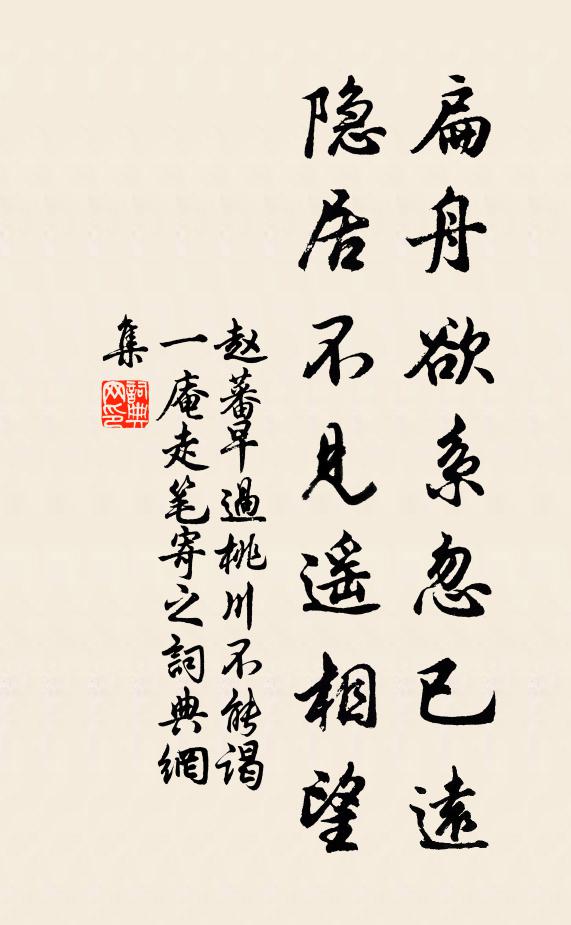 扁舟欲系忽已遠
隐居不见遥相望
赵蕃早過桃川不能谒
一庵走笔寄之詞典網
集
詞典
网印